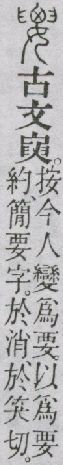 古文。按今人變爲要。以爲要
約、簡要字。於消於笑切。